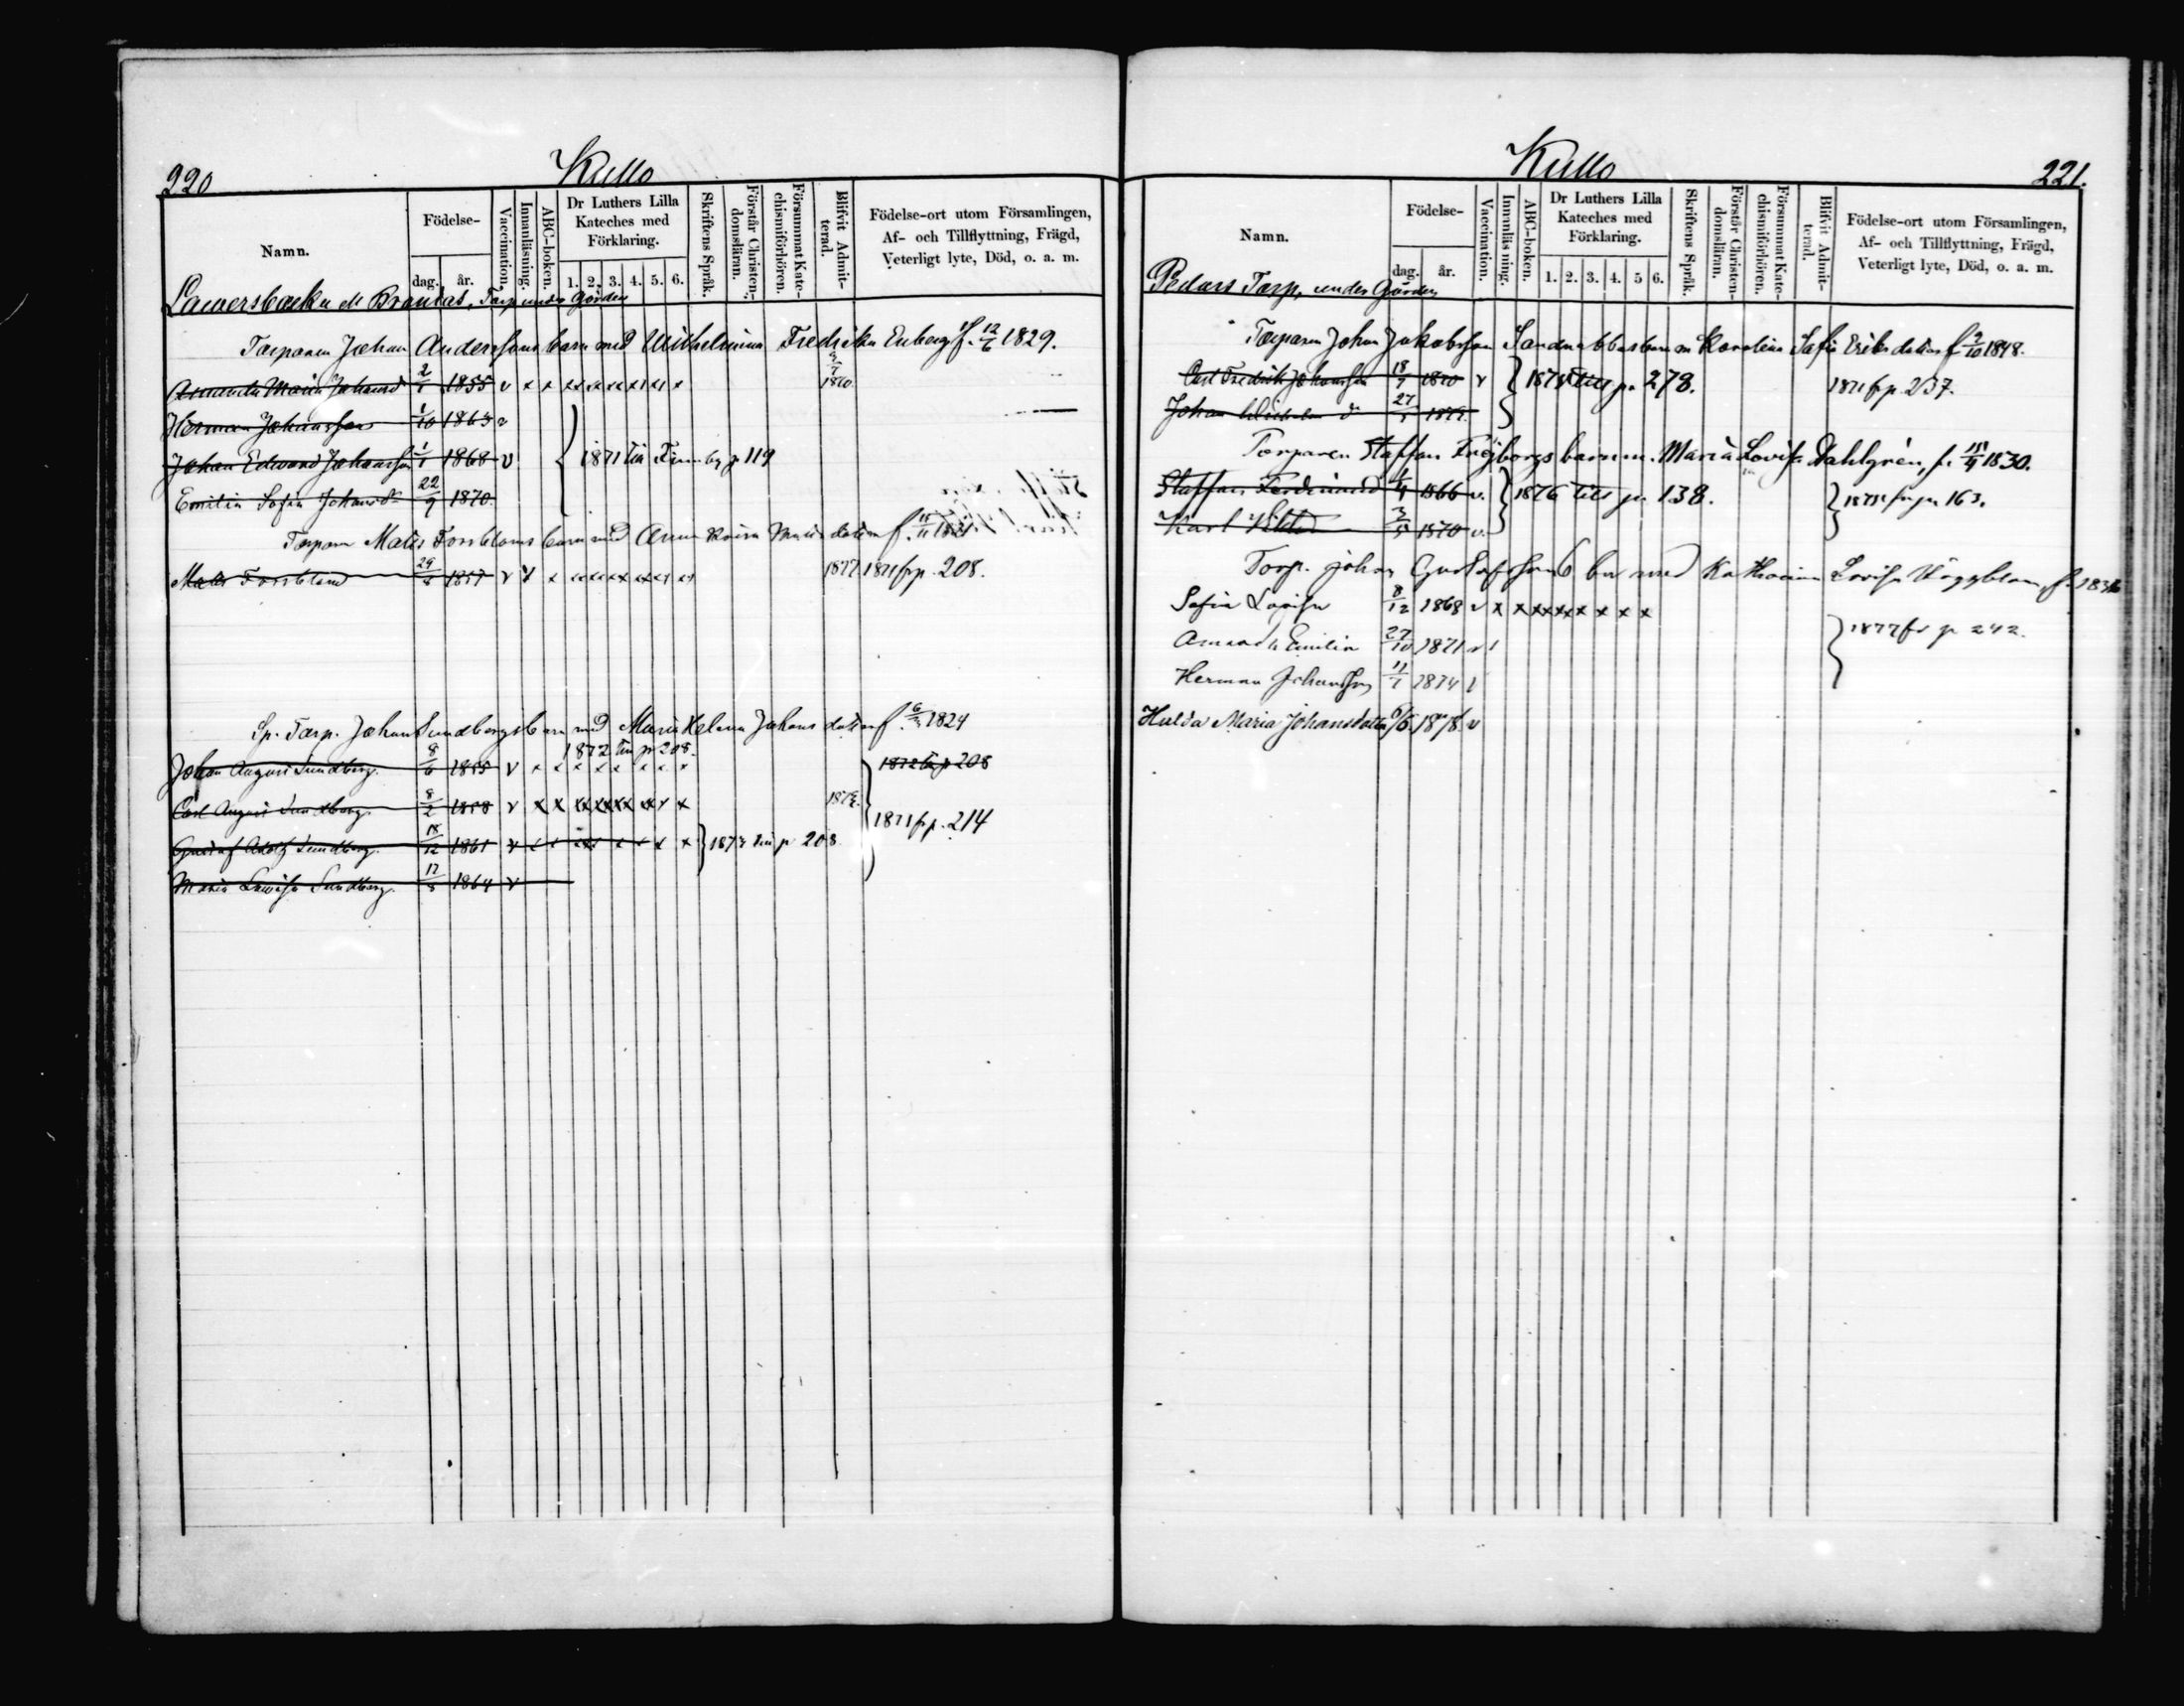 220
Kullo
Namn.
Födelse-
dag.
år.
Vaccination.
Innanläsning.
ABC-boken.
Dr Luthers Lilla
Kateches med
Förklaring.
1. 2. 3. 4. 5. 6.
Skriftens Språk.
Förstår Christen-
domsläran.
Försummat Kate-
chismiförhören.
Blifvit Admit-
terad.
Födelse-ort utom Församlingen,
Af- och Tillflyttning, Frägd,
Veterligt lyte, Död, o. a. m.
Torp under Gården
Torparen Johan Anderssons barn med Wilhelmina Fredrika Enberg f. 12/6 1829.
Amanda Maria Johansd 1855 v x x x x x x x x x 1870
Herman Johansson 1/10 1863 v
Johan Edvard Johansson 1/1 1868 v 1871 till Finnby p 119
Emilia Sofia Johansd 22/9 1870
Matts Forsbloms barn med Anna
Matts Forsblom 1857 v v x x x x x x x x 1877 1871 fr p. 208.
Sp. Torp. Johan Sundbergs barn med Maria Helena Johans dotter f. 1824
1872 till p 208.
Johan August Sundberg. 8/6 1855 v x x x x x x x x 1872 till p 208
Carl August Sundberg 8/2 1858 v x x x x x x x x x
1871 fr p. 214
Gustaf Adolf Sundberg. 18/12 1861 v x x x x x x x x 1873 till p 208
Maria Lovisa Sundberg. 1864 v
Kullo
221.
Namn.
Födelse-
dag.
år.
Vaccination.
Innanläsning.
ABC-boken.
Dr Luthers Lilla
Kateches med
Förklaring.
1. 2. 3. 4. 5 6.
Skriftens Språk.
Förstår Christen-
domsläran.
Försummat Kate-
chismiförhören.
Blifvit Admit-
terad.
Födelse-ort utom Församlingen,
Af- och Tillflyttning, Frägd,
Veterligt lyte, Död, o. a. m.
Pedars Torp, under Gården
Torparen Johan Jakobsson barn m Karolina Sofia Eriks dotter f. 1848.
Carl Fredrik Johansson 1870 v till p. 278. 1871 fr p. 237.
Johan Wilhelm d:o
Torparen Staffan Frijborgs barn m. Maria Lovisa Dahlgrén, f. 15/4 1830.
Staffan Ferdinand 1/4 1866 v. 1876 till p. 138. fr p. 163.
Karl Viktor 3/5 1870 v.
Torp. Johan Gustafssons barn med Katharina Lovisa Häggblom, f.
Sofia Lovisa 8/12 1868 v x x x x x x x x x
Amanda Emilia 27/10 1871 v 1877 fr p 242.
Herman Johansson 1874
Hulda Maria Johansdotter 6/5 1878. v